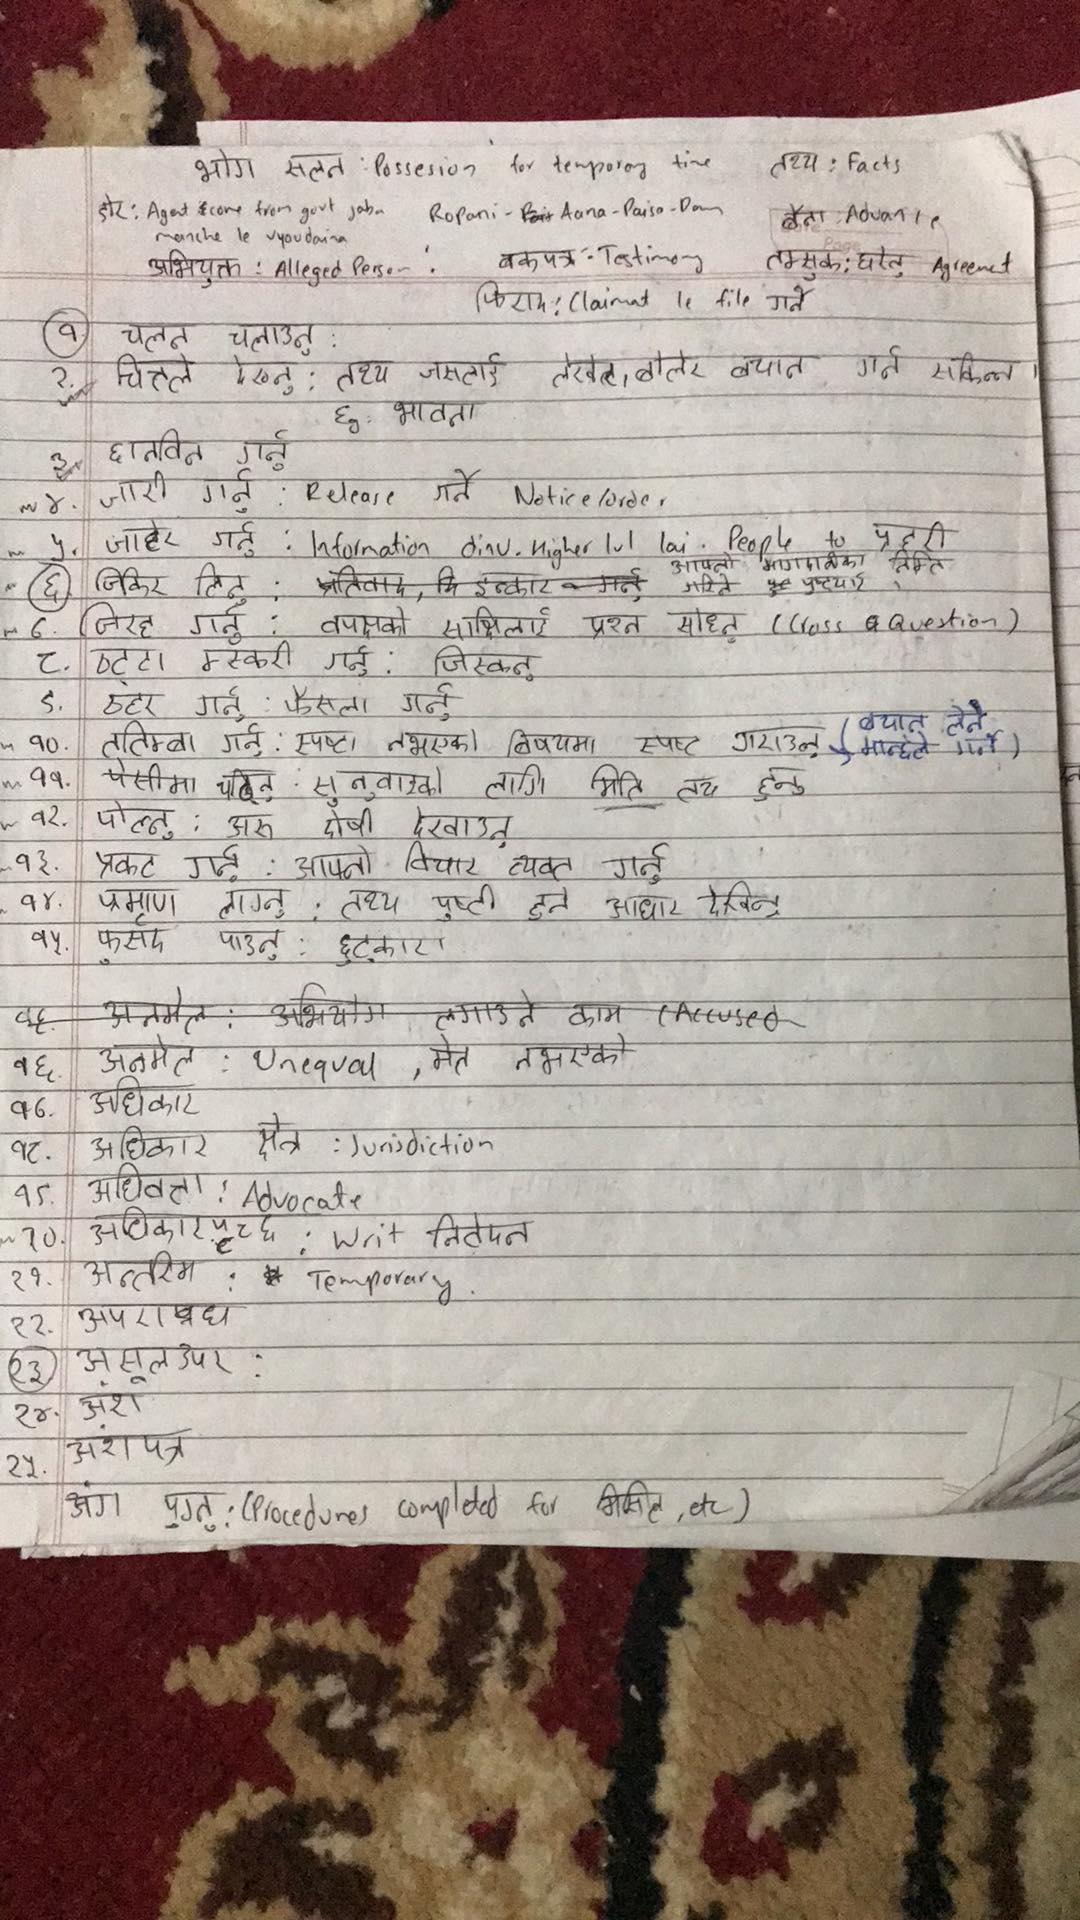 भोग चलन : Possesion for temporary time तथ्य : Facts
डोर : Agent come from govt jaba Ropani - Aana - Paisa - Dam बैना : Advance
manche le vyaudaina
अभियुक्त : Alleged Person : वकपत्र - Testimony तमसुक : घरेलु Agreemet
फिराद : Claimat le file गर्ने
१ चलन चलाउनु :
२. चित्तले देख्नु : तथ्य जसलाई लेखेर, बोलेर बयान गर्न सकिन्न ।
भावना
३. छानविन गर्नु
४. जारी गर्नु : Release गर्ने Notice/order.
५. जाहेर गर्नु : Information dinu. Higher lvl lai. People to प्रहरी
६ जिकिर लिनु : प्रतिवाद, कि इन्कार गर्नु आफ्नो मागदावीका निम्ति
गरिने पुष्ट्याई ।
७. जिरह गर्नु : वपक्षको साक्षिलाई प्रश्न सोध्नु (Cross Question)
८. ठट्टा मस्करी गर्नु : जिस्कनु
९. ठहर गर्नु : फैसला गर्नु
१०. ततिम्बा गर्नु : स्पष्टा नभएको विषयमा स्पष्ट गराउनु (बयान लेने
मान्छेले गर्ने)
११. पेसीमा चढ्नु : सुनुवाइको लागि मिति तय हुनु
१२. पोल्नु : अरु दोषी देखाउनु
१३. प्रकट गर्नु : आफ्नो विचार व्यक्त गर्नु
१४. प्रमाण लाग्नु : तथ्य पुष्टी हुने आधार देखिनु
१५. फुर्सद पाउनु : छुट्कारा
१६. अनमेल : अभियोग लगाउने काम (Accused
१६. अनमेल : Unequal , मेल नभएको
१७. अधिकार
१८. अधिकार क्षेत्र : Jurisdiction
१९. अधिवक्ता : Advocate
२०. अधिकारपृच्छ : Writ निवेदन
२१. अन्तरिम : Temporary.
२२. अपराध
२३ असूलउपर :
२४. अंश
२५. अंशपत्र
अंग पुग्नु : (Procedures completed for मिसिल, etc)